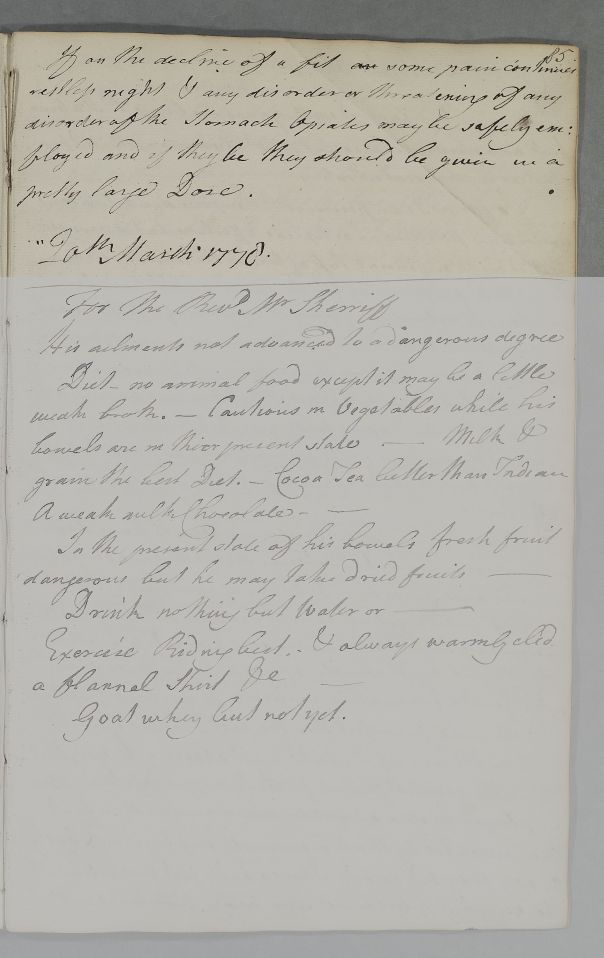 85.
If on the decline of a fit an some pain continues
restless night & any disorder or threatening of any
disorder of the Stomach Opiates may be safely em:
ployed and if they be they should be given in a
pretty large Dose.
"20th March 1778.
For the Revd Mr Sherriff
His ailments not advanced to a dangerous degree
Diet - no animal food except it may be a little
weak broth. — Cautious in Vegetables while his
bowels are in their present state — Milk &
grain the best Diet. — Cocoa Tea better than Indian
A weak milk Chocolate - —
In the present state of his bowels fresh fruit
dangerous but he may take dried fruits —
Drink nothing but Water or —
Exercise Riding best. - & always warmly cled
a flannel Shirt &c —
Goat whey but not yet.